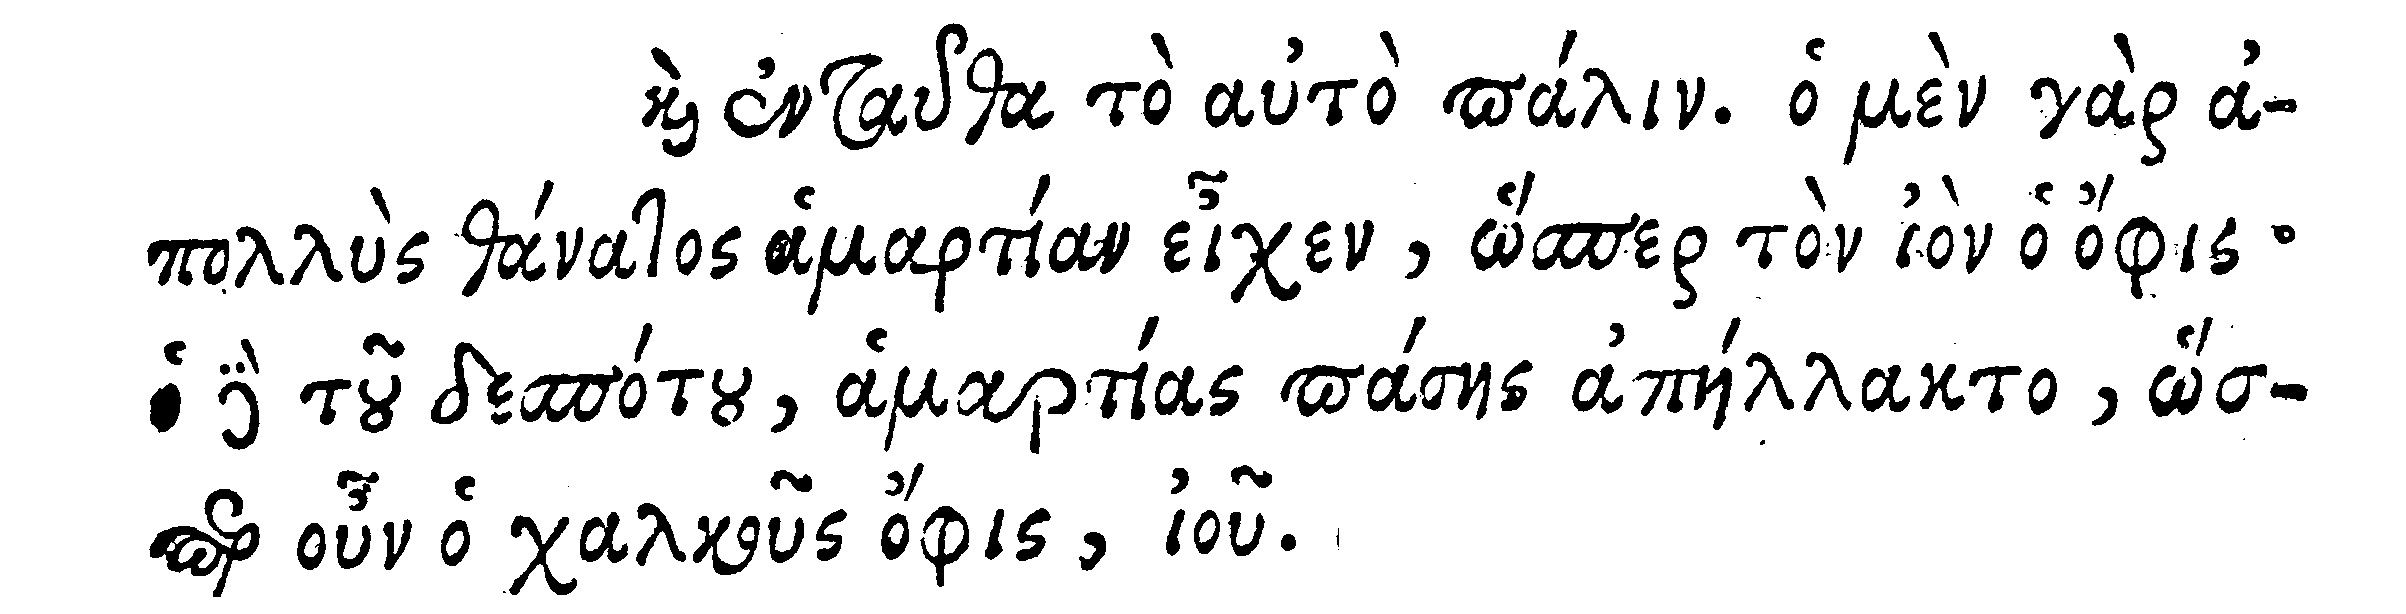 καὶ ἐνταῦθα τὸ αὐτὸ πάλιν. ὁ μὲν γὰρ ἀ-
πολλὺς θάνατος ἁμαρτίαν εἶχεν, ὥσπερ τὸν ἰὸν ὁ ὄφις·
ὁ δὲ τοῦ δεσπότου, ἁμαρτίας πάσης ἀπήλλακτο, ὥσ-
περ οὖν ὁ χαλκοῦς ὄφις, ἰοῦ.